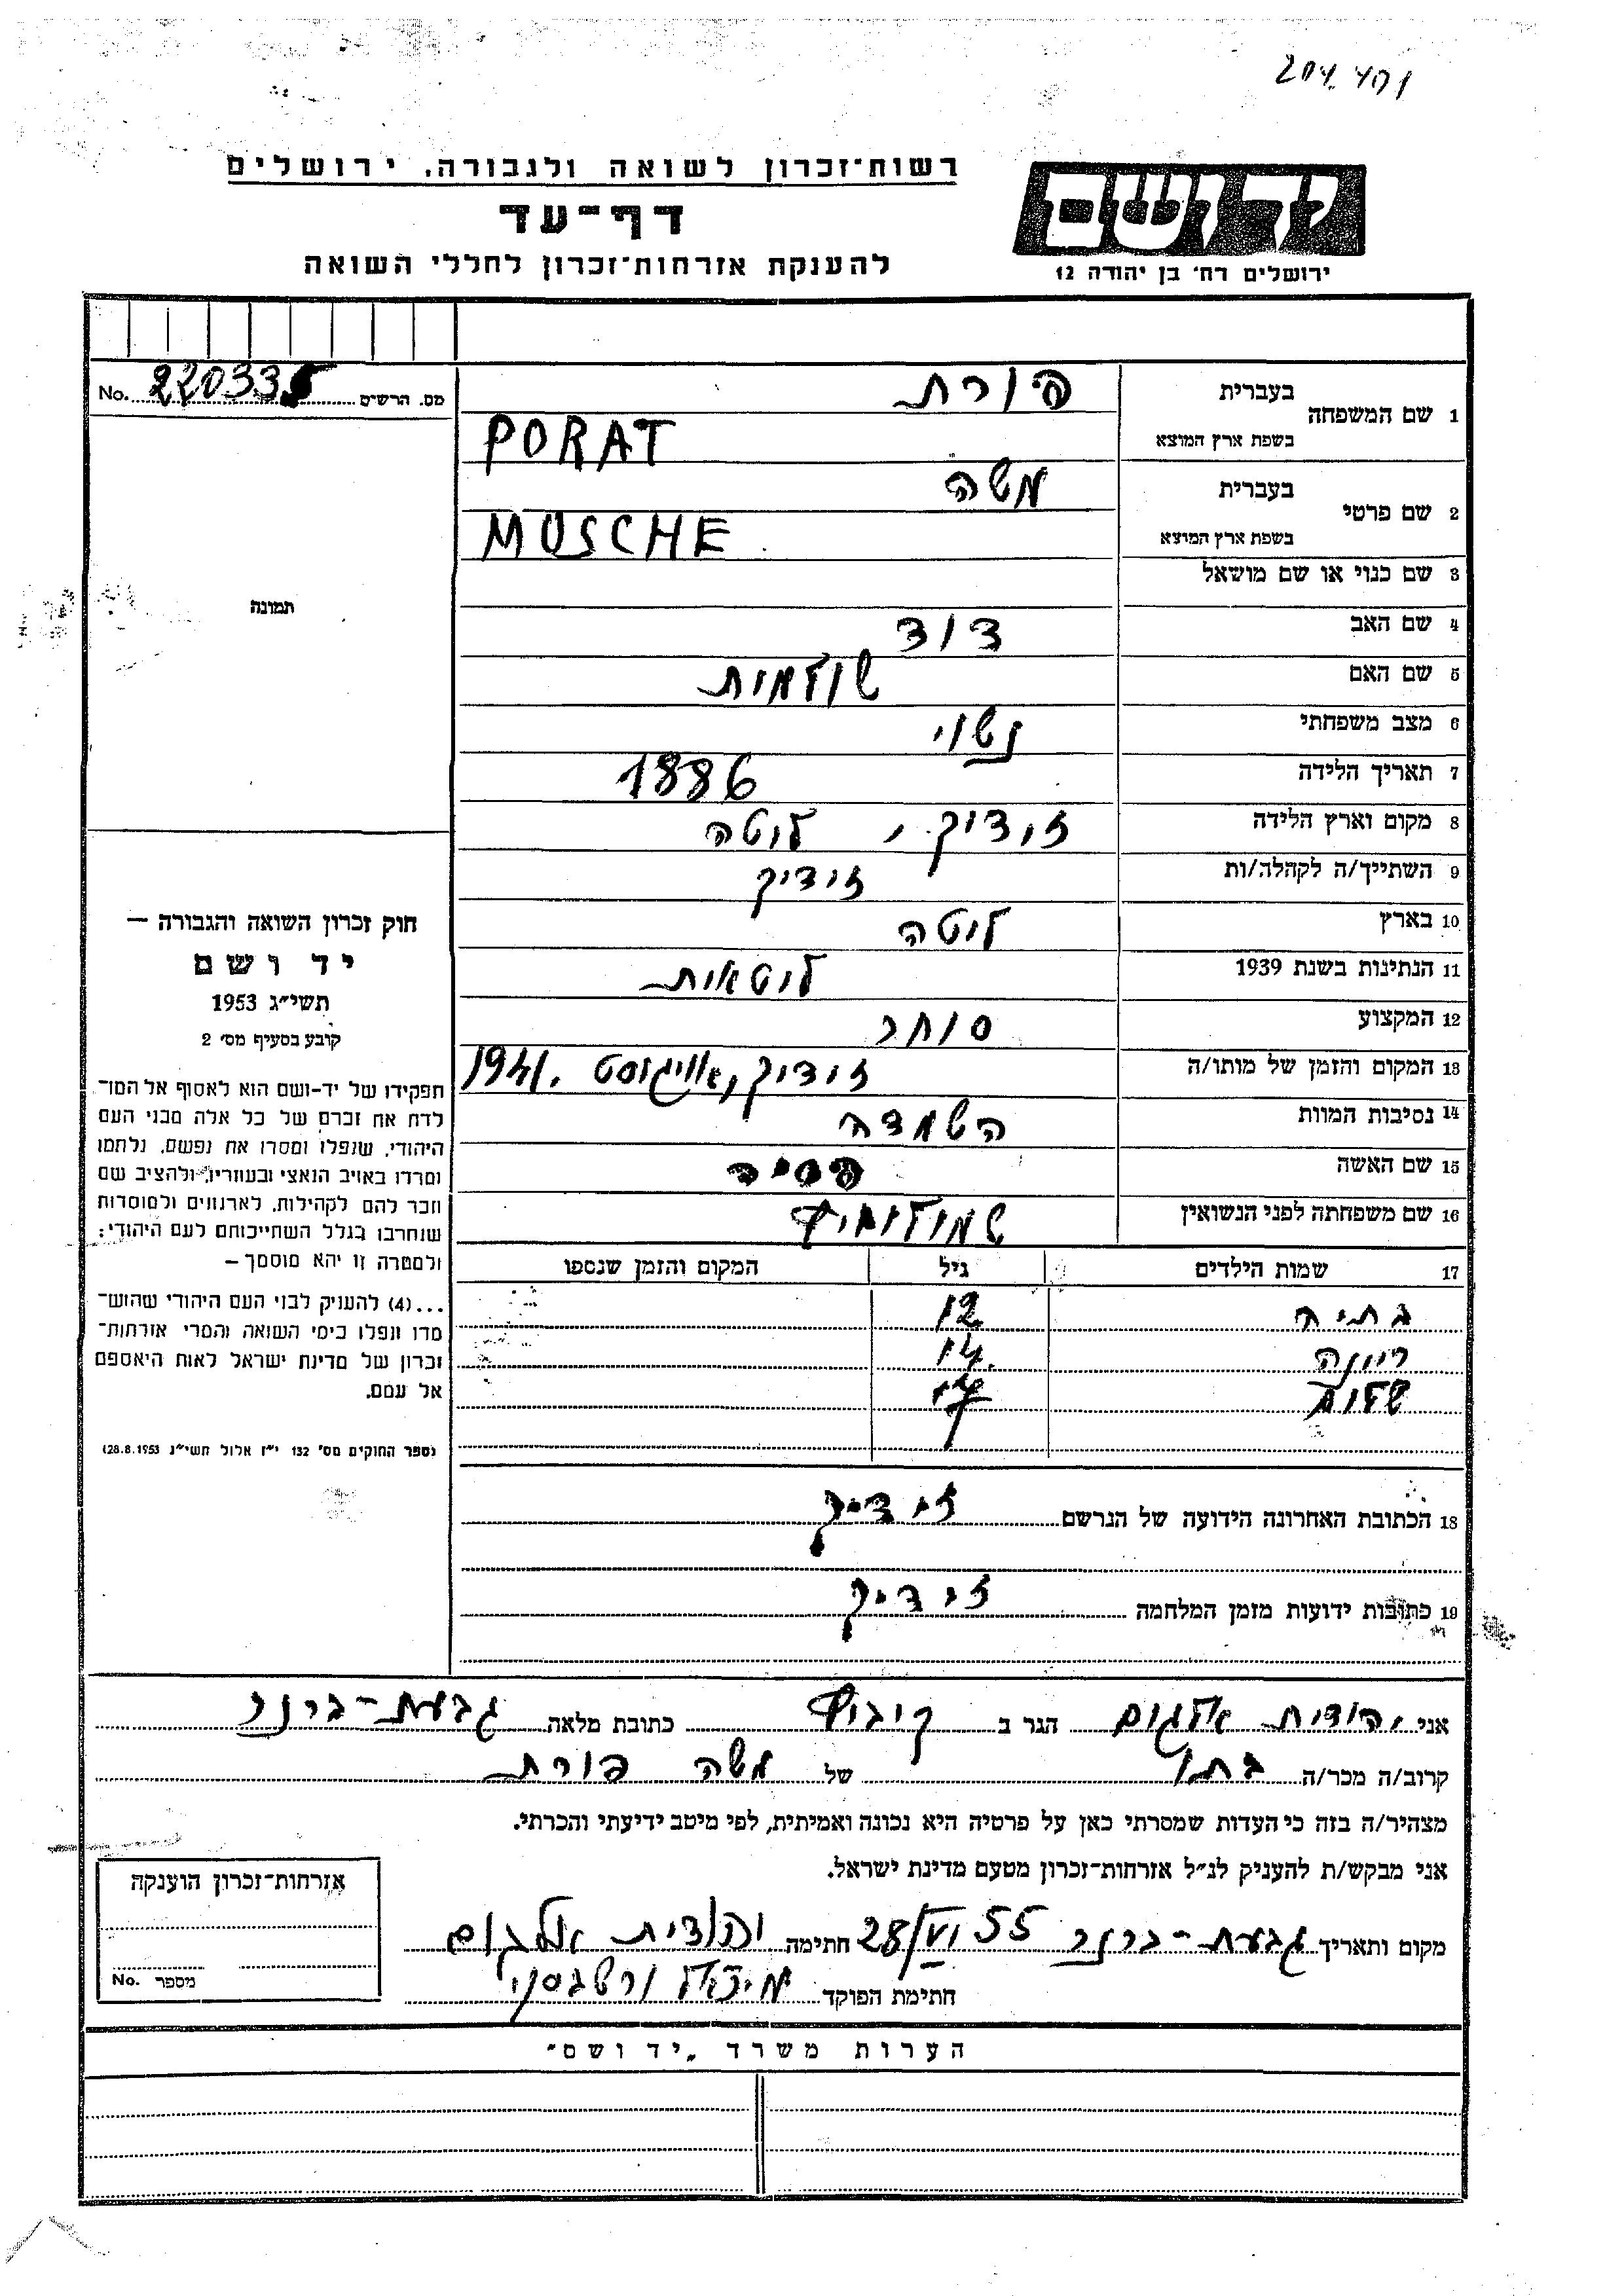 204.401
רשות־זכרון לשואה ולגבורה, ירושלים
דף־עד
להענקת אזרחות־זכרון לחללי השואה
ידושם
ירושלים רח׳ בן יהודה 12
מס. הרשים 220335 No.
1 שם המשפחה בעברית פורת
בשפת ארץ המוצא PORAT
2 שם פרטי בעברית משה
בשפת ארץ המוצא MUSCHE
3 שם כנוי או שם מושאל
4 שם האב דוד
5 שם האם שולמית
6 מצב משפחתי נשוי
7 תאריך הלידה 1886
8 מקום וארץ הלידה זידיק, ליטה
9 השתייך/ה לקהלה/ות זידיק
10 בארץ ליטה
11 הנתינות בשנת 1939 ליטאית
12 המקצוע סוחר
13 המקום והזמן של מותו/ה זידיק, אויגוסט 1941.
14 נסיבות המוות השמדה
15 שם האשה
16 שם משפחתה לפני הנשואין
17 שמות הילדים גיל המקום והזמן שנספו
בתיה 12
ריונה 14.
שלום
18 הכתובת האחרונה הידועה של הנרשם זידיק
19 כתובות ידועות מזמן המלחמה זידיק
תמונה
חוק זכרון השואה והגבורה —
יד ושם
תשי״ג 1953
קובע בסעיף מס׳ 2
תפקידו של יד-ושם הוא לאסוף אל המו־
לדת את זכרם של כל אלה מבני העם
היהודי, שנפלו ומסרו את נפשם, נלחמו
ומרדו באויב הנאצי ובעוזריו, ולהציב שם
וזכר להם לקהילות, לארגונים ולמוסדות
שנחרבו בגלל השתייכותם לעם היהודי;
ולמטרה זו יהא מוסמך —
...(4) להעניק לבני העם היהודי שהוש־
מדו ונפלו בימי השואה והמרי אזרחות־
זכרון של מדינת ישראל לאות היאספם
אל עמם.
(ספר החוקים מס׳ 132 י״ז אלול תשי״ג 28.8.1953)
אני יהודית אלגום הגר ב קיבוץ כתובת מלאה גבעת-ברנר
קרוב/ה מכר/ה בתו של משה פורת
מצהיר/ה בזה כי העדות שמסרתי כאן על פרטיה היא נכונה ואמיתית, לפי מיטב ידיעתי והכרתי.
אני מבקש/ת להעניק לנ״ל אזרחות-זכרון מטעם מדינת ישראל.
מקום ותאריך גבעת-ברנר 28/VI 55 חתימה יהודית אלגום
חתימת הפוקד
אזרחות־זכרון הוענקה
מספר No.
הערות משרד „יד ושם״